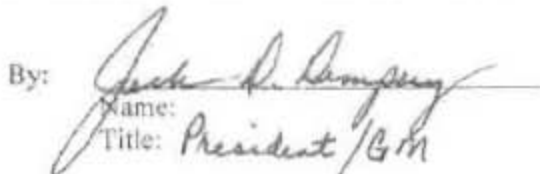 By: Jack D. Dempsey
Name:
Title: President/GM